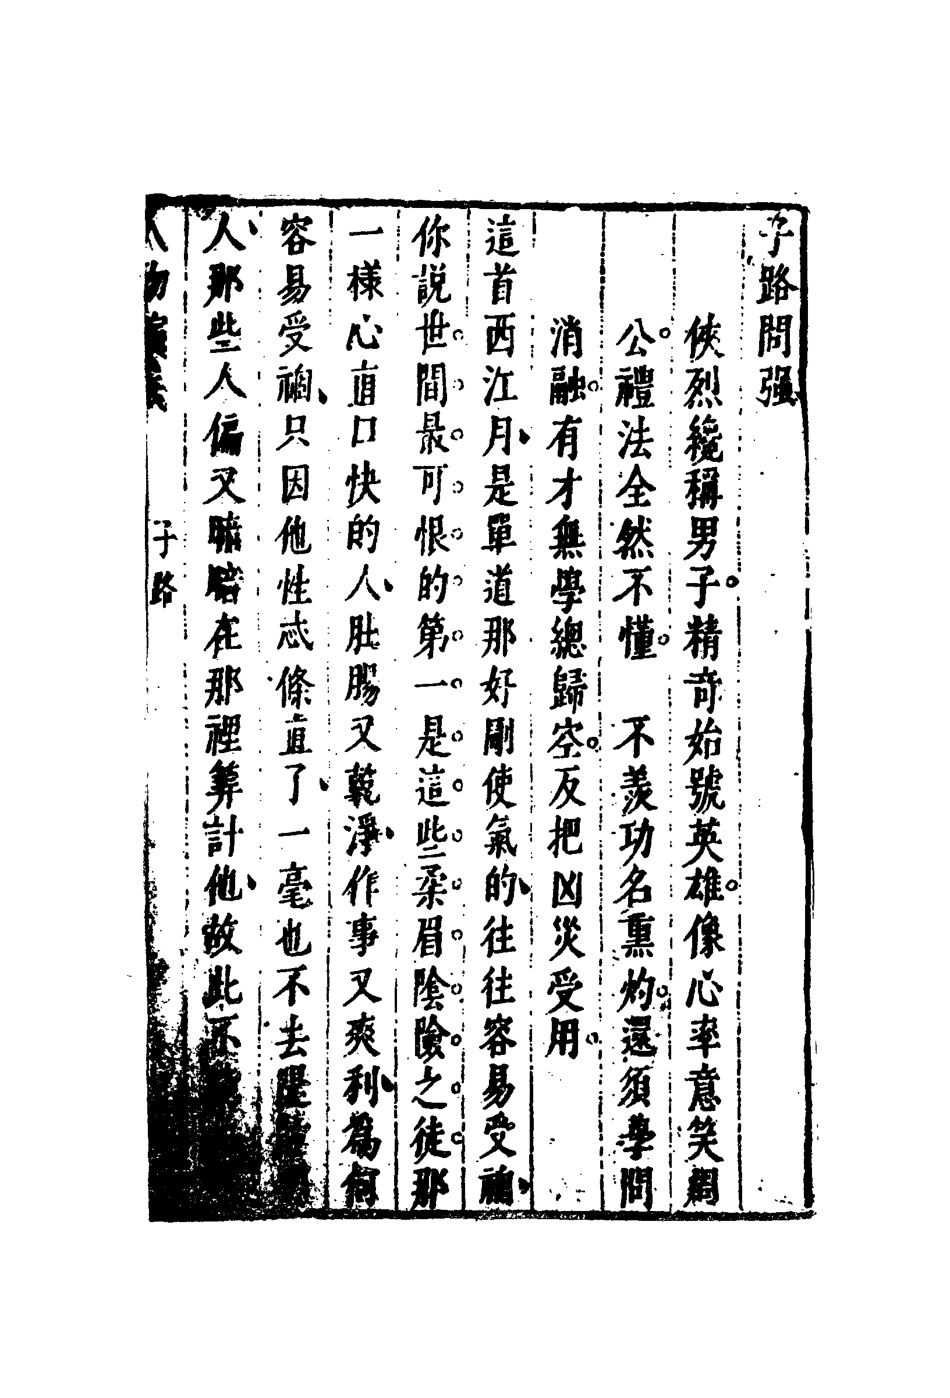 子路問強
俠烈纔稱男子。精奇始號英雄。像心率意笑周
公。禮法全然不懂。　不羨功名熏灼。還須學問
消融。有才無學總歸空。反把凶災受用。
這首西江月、是單道那好剛使氣的、往往容易受禍、
你說世間最可恨的第一是這些柔眉陰險之徒那
一樣心直口快的人、肚腸又乾淨、作事又爽利、為何
容易受禍、只因他性忒條直了、一毫也不去隄
人、那些人偏又暗暗在那裡筭計他、故此不
人物演
子路